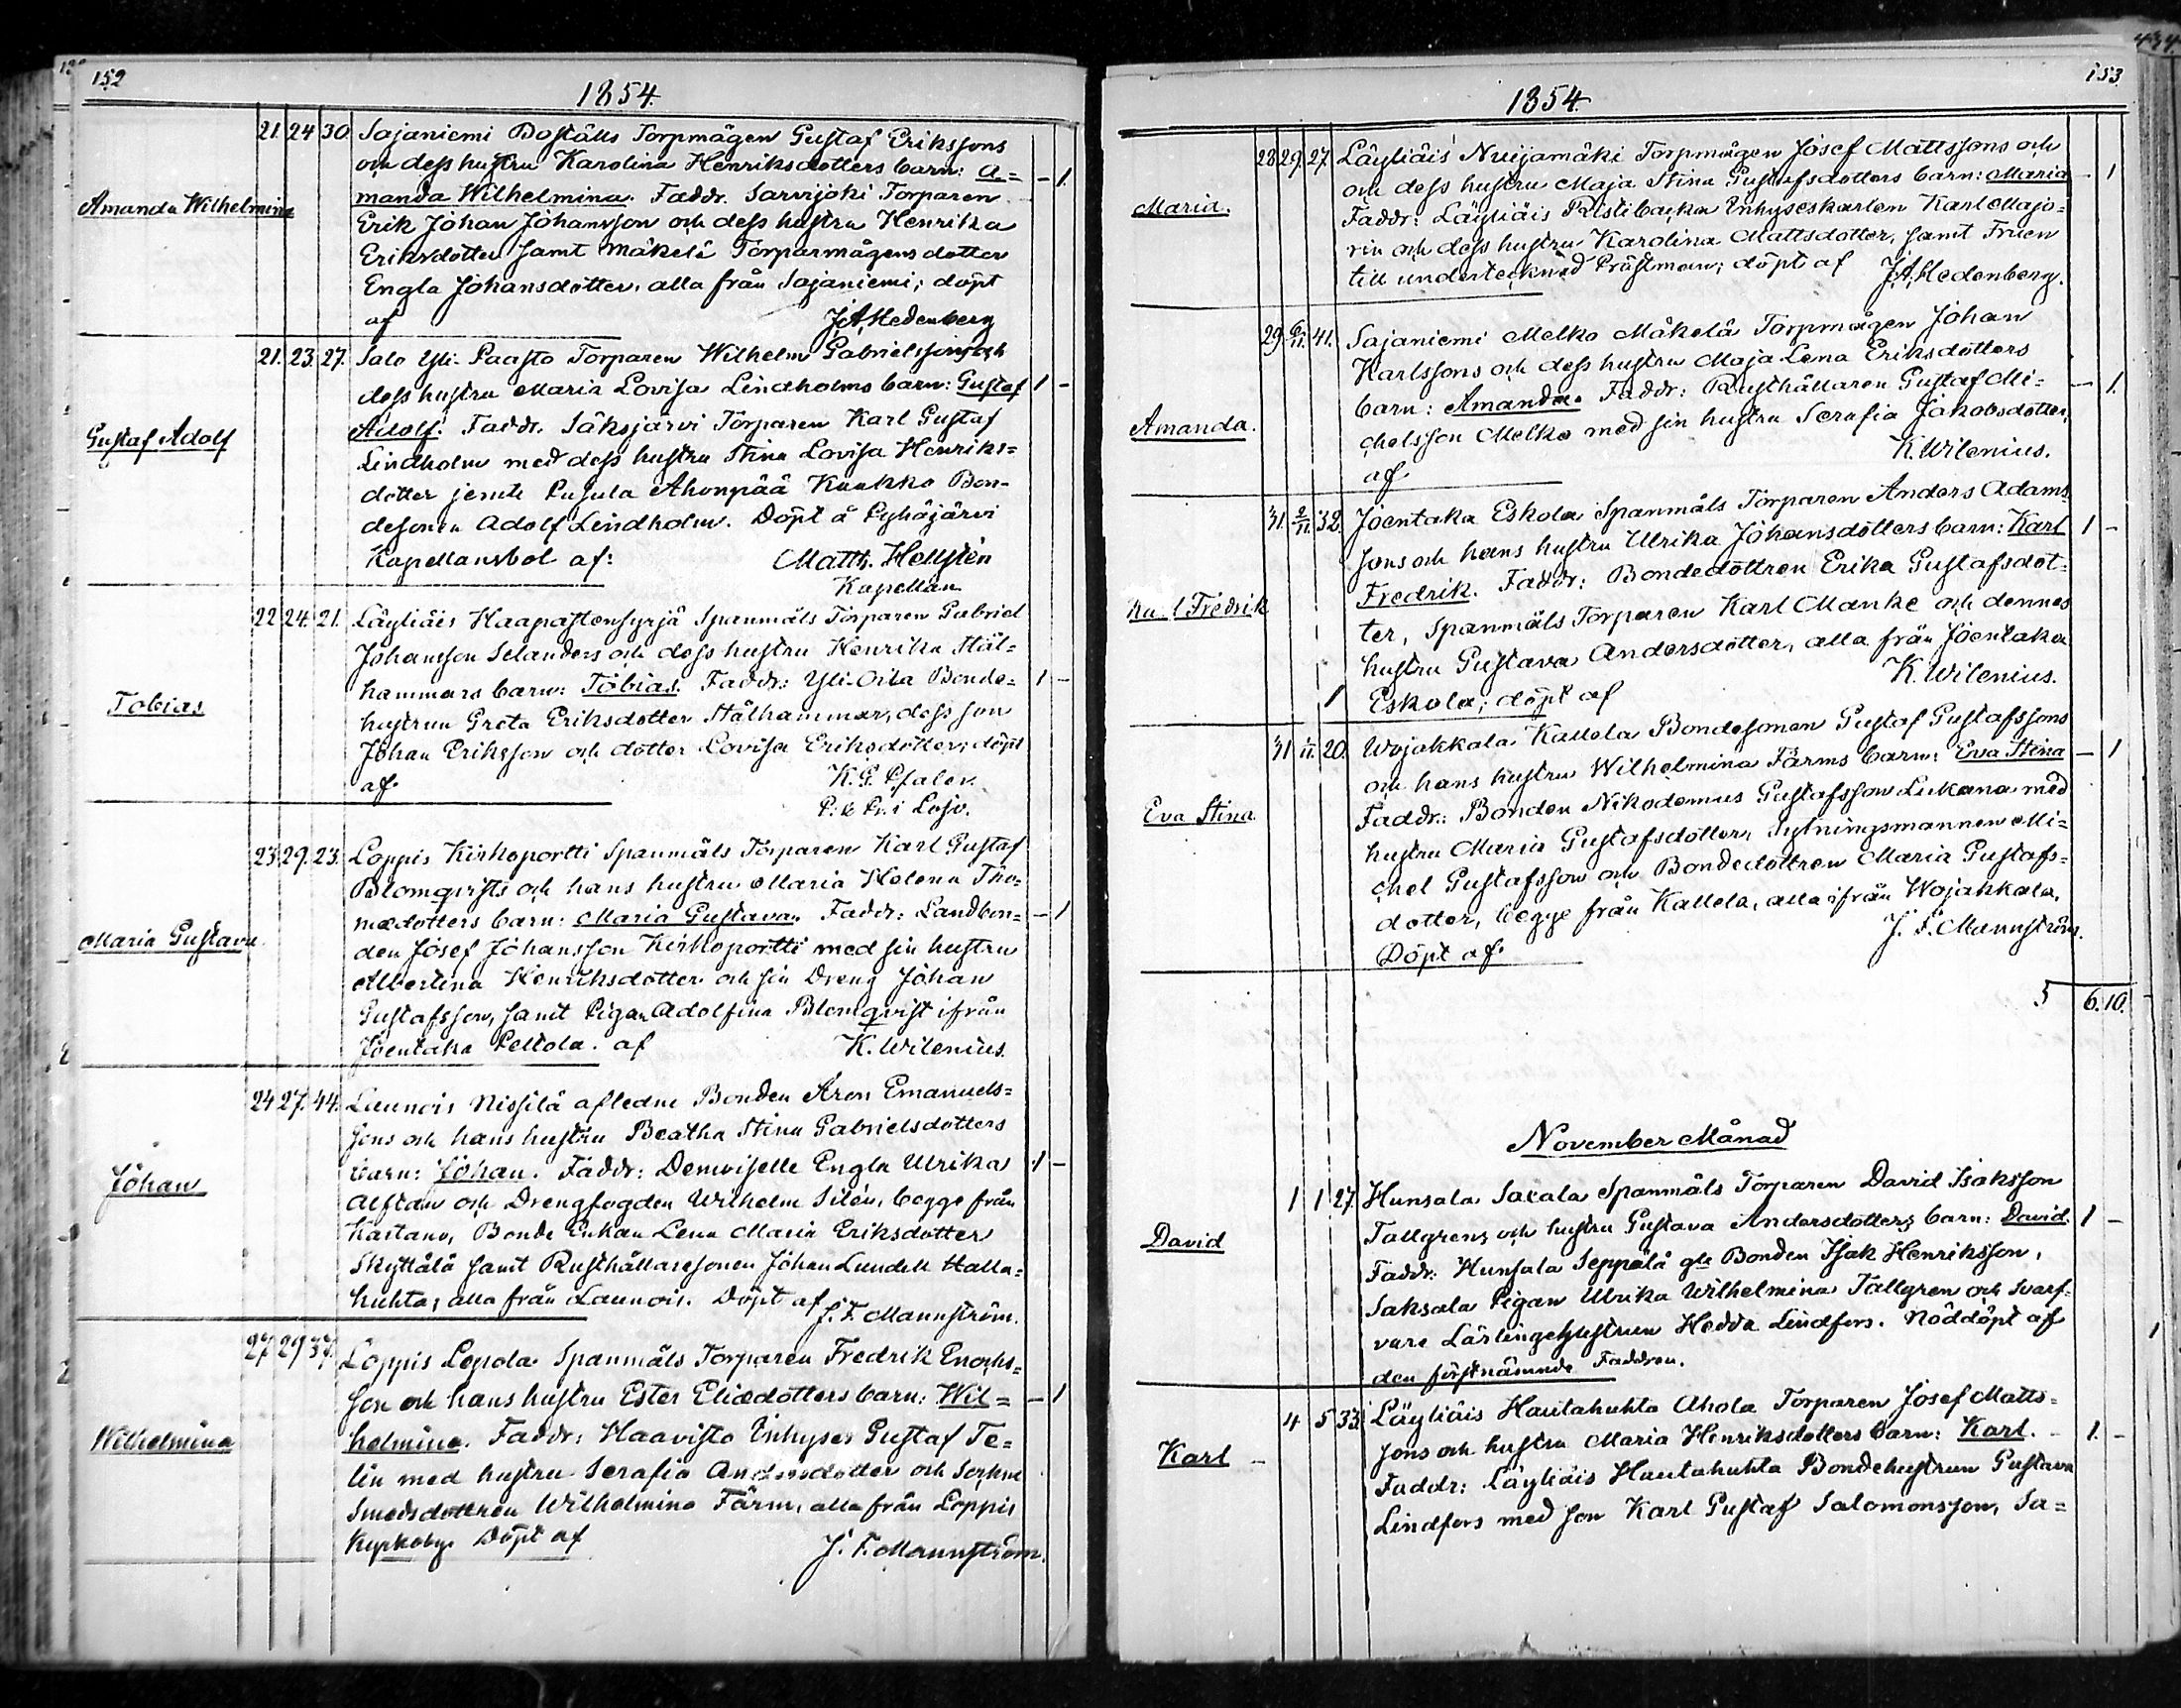 152
1854.
Amanda Wilhelmina
21. 24 30. Sajaniemi Boställs Torpmågen Gustaf Erikssons
och dess hustru Karolina Henriksdotters barn: A= - 1.
manda Wilhelmina. Faddr. Sarvijoki Torparen
Erik Johan Johansson och dess hustru Henrika
Eriksdotter samt Mäkelä Torparmågens dotter
Engla Johansdotter, alla från Sajaniemi; döpt
af J.A.Hedenberg
Gustaf Adolf
21. 23. 27. Salo Yli-Paasto Torparen Wilhelm Gabrielssons och
dess hustru Maria Lovisa Lindholms barn: Gustaf 1 -
Adolf. Faddr. Säksjärvi Torparen Karl Gustaf
Lindholm med dess hustru Stina Lovisa Henriks=
dotter jemte Pusula Ahonpää Kuukko Bon-
desonen Adolf Lindholm. Döpt å Pyhäjärvi
Kapellansbol af: Matth. Hellstén
Kapellan
Tobias
22 24. 21. Läyliäis Haapastensyrjä Spanmåls Torparen Gabriel
Johansson Selanders och dess hustru Henrika Stål=
hammars barn: Tobias. Faddr: Yli-Oita Bonde= 1 -
hustrun Greta Eriksdotter Stålhammar, dess son
Johan Eriksson och dotter Lovisa Eriksdotter; döpt
af. K.G. Psaler.
P. & Pr. i Lojo.
Maria Gustava
23. 29. 23. Loppis Kirkoportti Spanmåls Torparen Karl Gustaf
Blomqvists och hans hustru Maria Helena Tho=
mædotters barn: Maria Gustava. Faddr: Landbon= - 1
den Josef Johansson Kirkoportti med sin hustru
Albertina Henriksdotter och sin Dreng Johan
Gustafsson, samt Pigan Adolfina Blomqvist ifrån
Joentaka Peltola. af K. Wilenius.
Johan
24 27. 44. Launois Nissilä afledne Bonden Aron Emanuels=
sons och hans hustru Beatha Stina Gabrielsdotters
barn: Johan. Faddr: Demoiselle Engla Ulrika 1 -
Alftan och Drengfogden Wilhelm Silén, begge från
Kartano, Bonde Enkan Lena Maria Eriksdotter
Skyttälä samt Rusthållaresonen Johan Lundell Halla=
huhta; alla från Launois. Döpt af J. F. Mannström.
Wilhelmina
27 29 37. Loppis Lepola Spanmåls Torparen Fredrik Enochs=
son och hans hustru Ester Eliædotters barn: Wil= - 1
helmina. Faddr: Haavisto Inhyses Gustaf Te=
lin med hustru Serafia Andersdotter och Sockne
Smedsdottren Wilhelmina Färm, alla från Loppis
Kyrkoby. Döpt af J. F. Mannström.
153
1854.
Maria.
28 29. 27. Läyliäis Nuijamäki Torpmågen Josef Mattssons och
och dess hustru Maja Stina Gustafsdotters barn: Maria - 1
Faddr: Läyliäis Ristibacka Inhyseskarlen Karl Majo=
rin och dess hustru Karolina Mattsdotter, samt Fruen
till undertecknad Prästman; döpt af J.A.Hedenberg.
Amanda.
29. 6/11. 41. Sajaniemi Melko Mäkelä Torpmågen Johan
Karlssons och dess hustru Maja Lena Eriksdotters
barn: Amanda. Faddr: Rusthållaren Gustaf Mi= - 1.
chelsson Melko med sin hustru Serafia Jakobsdotter,
af K. Wilenius.
Karl Fredrik
31. 2/11. 32. Joentaka Eskola Spanmåls Torparen Anders Adams=
sons och hans hustru Ulrika Johansdotters barn: Karl 1 -
Fredrik. Faddr: Bondedottren Erika Gustafsdot=
ter, Spanmåls Torparen Karl Manke och dennes
hustru Gustava Andersdotter, alla från Joentaka
Eskola; döpt af K. Wilenius.
Eva Stina.
31 /11. 20. Wojakkala Kallela Bondesonen Gustaf Gustafssons
och hans hustru Wilhelmina Färms barn: Eva Stina - 1
Faddr: Bonden Nikodemus Gustafsson Lukana med
hustru Maria Gustafsdotter, Sytningsmannen Mi=
chel Gustafsson och Bondedottren Maria Gustafs=
dotter, begge från Kallela, alla ifrån Wojakkala.
Döpt af. J. F. Mannström.
6. 10.
November Månad
David
1 1 27. Hunsala Saxala Spanmåls Torparen David Isaksson
Tallgrens och hustru Gustava Andersdotters barn: David. 1 -
Faddr: Hunsala Seppälä gle Bonden Isak Henriksson,
Saksala Pigan Ulrika Wilhelmina Tallgren och Svarf=
vare Lärlingehustrun Hedda Lindfors. Nöddöpt af
den förstnämnde Faddren.
Karl
4 5 33. Läyliäis Hautahuhta Ahola Torparen Josef Matts=
sons och hustru Maria Henriksdotters barn: Karl. 1. -
Faddr: Läyliäis Hautahuhta Bondehustrun Gustava
Lindfors med son Karl Gustaf Salomonsson, Sa=